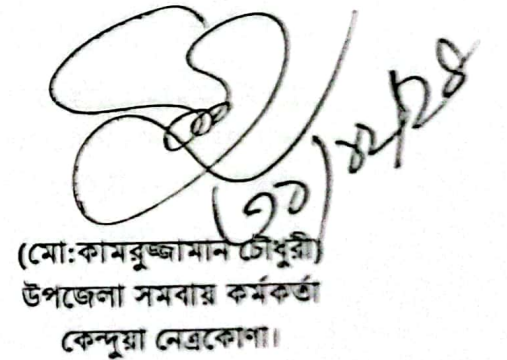 ৩০/১২/২৪
(মো:কামরুজ্জামান চৌধুরী)
উপজেলা সমবায় কর্মকর্তা
কেন্দুয়া নেত্রকোণা।